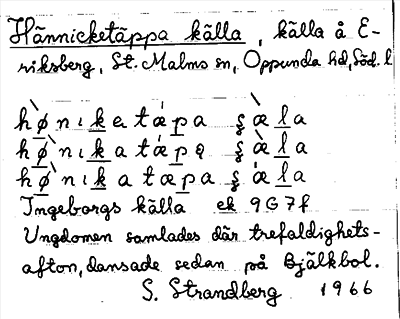 Hännicketäppa källa, källa å E-
riksberg, St. Malms sn, Oppunda hd, Söd. l
hø̀nıketǽpa ʂæ̀la
hø̀nıkatǽpa ʂæ̀la
hø̀nıkatæpa ʂǽla
Ingeborgs källa ek 9G7f
Ungdomen samlades där trefaldighets-
afton, dansade sedan på Bjälkbol.
S. Strandberg 1966